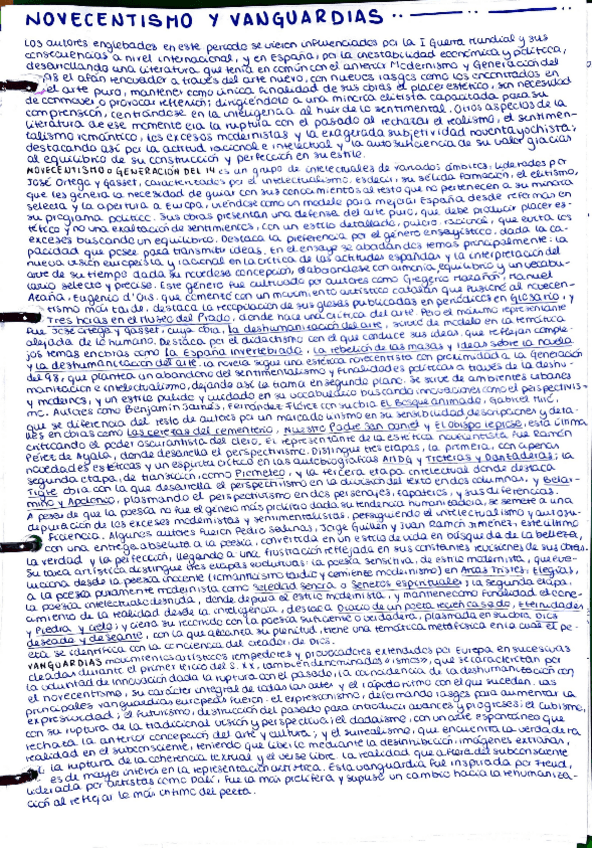 NOVECENTISMO Y VANGUARDIAS
Los autores englobados en este periodo se vieron influenciados por la I Guerra Mundial y sus
consecuencias a nivel internacional, y en España, por la inestabilidad económica y política,
desarrollando una literatura que tenía en común con el anterior Modernismo y Generación del
98 el afán renovador a través del arte nuevo, con nuevos rasgos como los encontrados en
el arte puro, mantener como única finalidad de sus obras el placer estético, sin necesidad
de conmover o provocar reflexión; dirigiéndolo a una minoría elitista capacitada para su
comprensión, centrándose en la inteligencia al huir de lo sentimental. Otros aspectos de la
literatura de ese momento era la ruptura con el pasado al rechazar el realismo, el sentimen-
talismo romántico, los excesos modernistas y la exagerada subjetividad noventayochista;
destacando así por la actitud racional e intelectual y la autosuficiencia de su valor gracias
al equilibrio de su construcción y perfección en su estilo.
NOVECENTISMO O GENERACIÓN DEL 14 es un grupo de intelectuales de variados ámbitos, liderados por
José Ortega y Gasset, caracterizados por el intelectualismo, es decir, su sólida formación, el elitismo,
que les genera la necesidad de guiar con sus conocimientos al resto que no pertenecen a su minoría
selecta y la apertura a Europa, viéndose como un modelo para mejorar España desde reformas en
su programa político. Sus obras presentan una defensa del arte puro, que debe producir placer es-
tético y no una exaltación de sentimientos, con un estilo detallado, pulcro
excesos buscando un equilibrio. Destaca la preferencia por el género ensayístico, dada la ca-
pacidad que posee para transmitir ideas, en el ensayo se abordan dos temas principalmente: la
nueva visión europeísta y racional en la crítica de las actitudes españolas y la interpretación del
arte de su tiempo dada su novedosa concepción, elaborándose con armonía, equilibrio y un vocabu-
lario selecto y preciso. Este género fue cultivado por autores como Gregorio Marañón, Manuel
Azaña, Eugenio d'Ors, que comenta con un movimiento artístico catalán que fusionó al novecen-
tismo más tarde, destaca la recopilación de sus glosas publicadas en periódicos en Glosario, y
Tres horas en el museo del Prado, donde hace una crítica del arte. Pero el máximo representante
fue José Ortega y Gasset, cuya obra, la deshumanización del arte, sirve de modelo en la temática
alejada de lo humano. Destaca por el didactismo con el que conduce sus ideas, que reflejan comple-
jos temas en obras como La España invertebrada, la rebelión de las masas y Ideas sobre la novela
y la deshumanización del arte. La novela sigue una estética novecentista con proximidad a la Generación
del 98, que plantea un abandono del sentimentalismo y finalidades políticas a través de la deshu-
manización e intelectualismo, dejando así la trama en segundo plano. Se sirve de ambientes urbanos
y modernos, y un estilo pulido y cuidado en su vocabulario buscando innovaciones como el perspectivis-
mo. Autores como Benjamín Jarnés, Fernández Flórez con su obra El Bosque animado, Gabriel Miró,
que se diferencia del resto de autores por un marcado lirismo en su sensibilidad descripciones y deta-
lles en obras como Las cerezas del cementerio, Nuestro Padre San Daniel y El obispo leproso, esta última
criticando el poder oscurantista del clero. El representante de la estética novecentista fue Ramón
Pérez de Ayala, donde desarrolla el perspectivismo. Distingue tres etapas, la primera, con apenas
novedades estéticas y un espíritu crítico en las autobiográficas AMDG y Troteras y Danzaderas; la
segunda etapa, de transición, como Prometeo, y la tercera etapa intelectual donde destaca
Tigre obra con la que desarrolla el perspectivismo en la división del texto en dos columnas, y Belar-
mino y Apolonio, plasmando el perspectivismo en dos personajes, zapateros, y sus diferencias.
A pesar de que la poesía no fue el género más prolífero dado su tendencia humanizadora, se somete a una
depuración de los excesos modernistas y sentimentalistas, persiguiendo el intelectualismo y autosu-
ficiencia. Algunos autores fueron Pedro Salinas, Jorge Guillén y Juan Ramón Jiménez, este último
con una entrega absoluta a la poesía, convertida en un estilo de vida en búsqueda de la belleza,
la verdad y la perfección, llegando a una frustración reflejada en sus constantes revisiones de sus obras.
Su tarea artística distingue tres etapas evolutivas: la poesía sensitiva, de estilo modernista, que evo-
luciona desde la poesía inocente (romanticismo tardío y comienzo modernismo) en Arias Tristes, Elegías,
a la poesía puramente modernista como Soledad sonora o Sonetos espirituales; la segunda etapa,
la poesía intelectual desnuda, donde depura el estilo modernista, y mantiene como finalidad el cono-
cimiento de la realidad desde la inteligencia, destaca Diario de un poeta recién casado, Eternidades,
y Piedra y cielo; y cierra su recorrido con la poesía suficiente o verdadera, plasmada en su obra, Dios
deseado y deseante, con la que alcanza su plenitud, tiene una temática metafísica en la cual el po-
eta se identifica con la conciencia del creador, de Dios.
VANGUARDIAS movimientos artísticos rompedores y provocadores extendidos por Europa en sucesivas
oleadas durante el primer tercio del S. XX, también denominados «ismos», que se caracterizan por
la voluntad de innovación dada la ruptura con el pasado, la coincidencia de la deshumanización con
el novecentismo, su carácter integral de todas las artes y el rápido ritmo con el que suceden. Las
principales vanguardias europeas fueron: el expresionismo, deformando rasgos para aumentar la
expresividad; el futurismo, destrucción del pasado para introducir avances y progresos; el cubismo,
con su ruptura de la tradicional visión y perspectiva; el dadaísmo, con un arte espontáneo que
rechaza la anterior concepción del arte y cultura; y el surrealismo, que encuentra la verdadera
realidad en el subconsciente, teniendo que liberarlo mediante la desinhibición, imágenes extrañas,
la ruptura de la coherencia textual y el verso libre. La realidad que aflora del subconsciente
es de mayor interés en la representación artística. Esta vanguardia fue inspirada por Freud,
liderada por artistas como Dalí, fue la más prolífera y supuso un cambio hacia la rehumaniza-
ción al reflejar lo más íntimo del poeta.